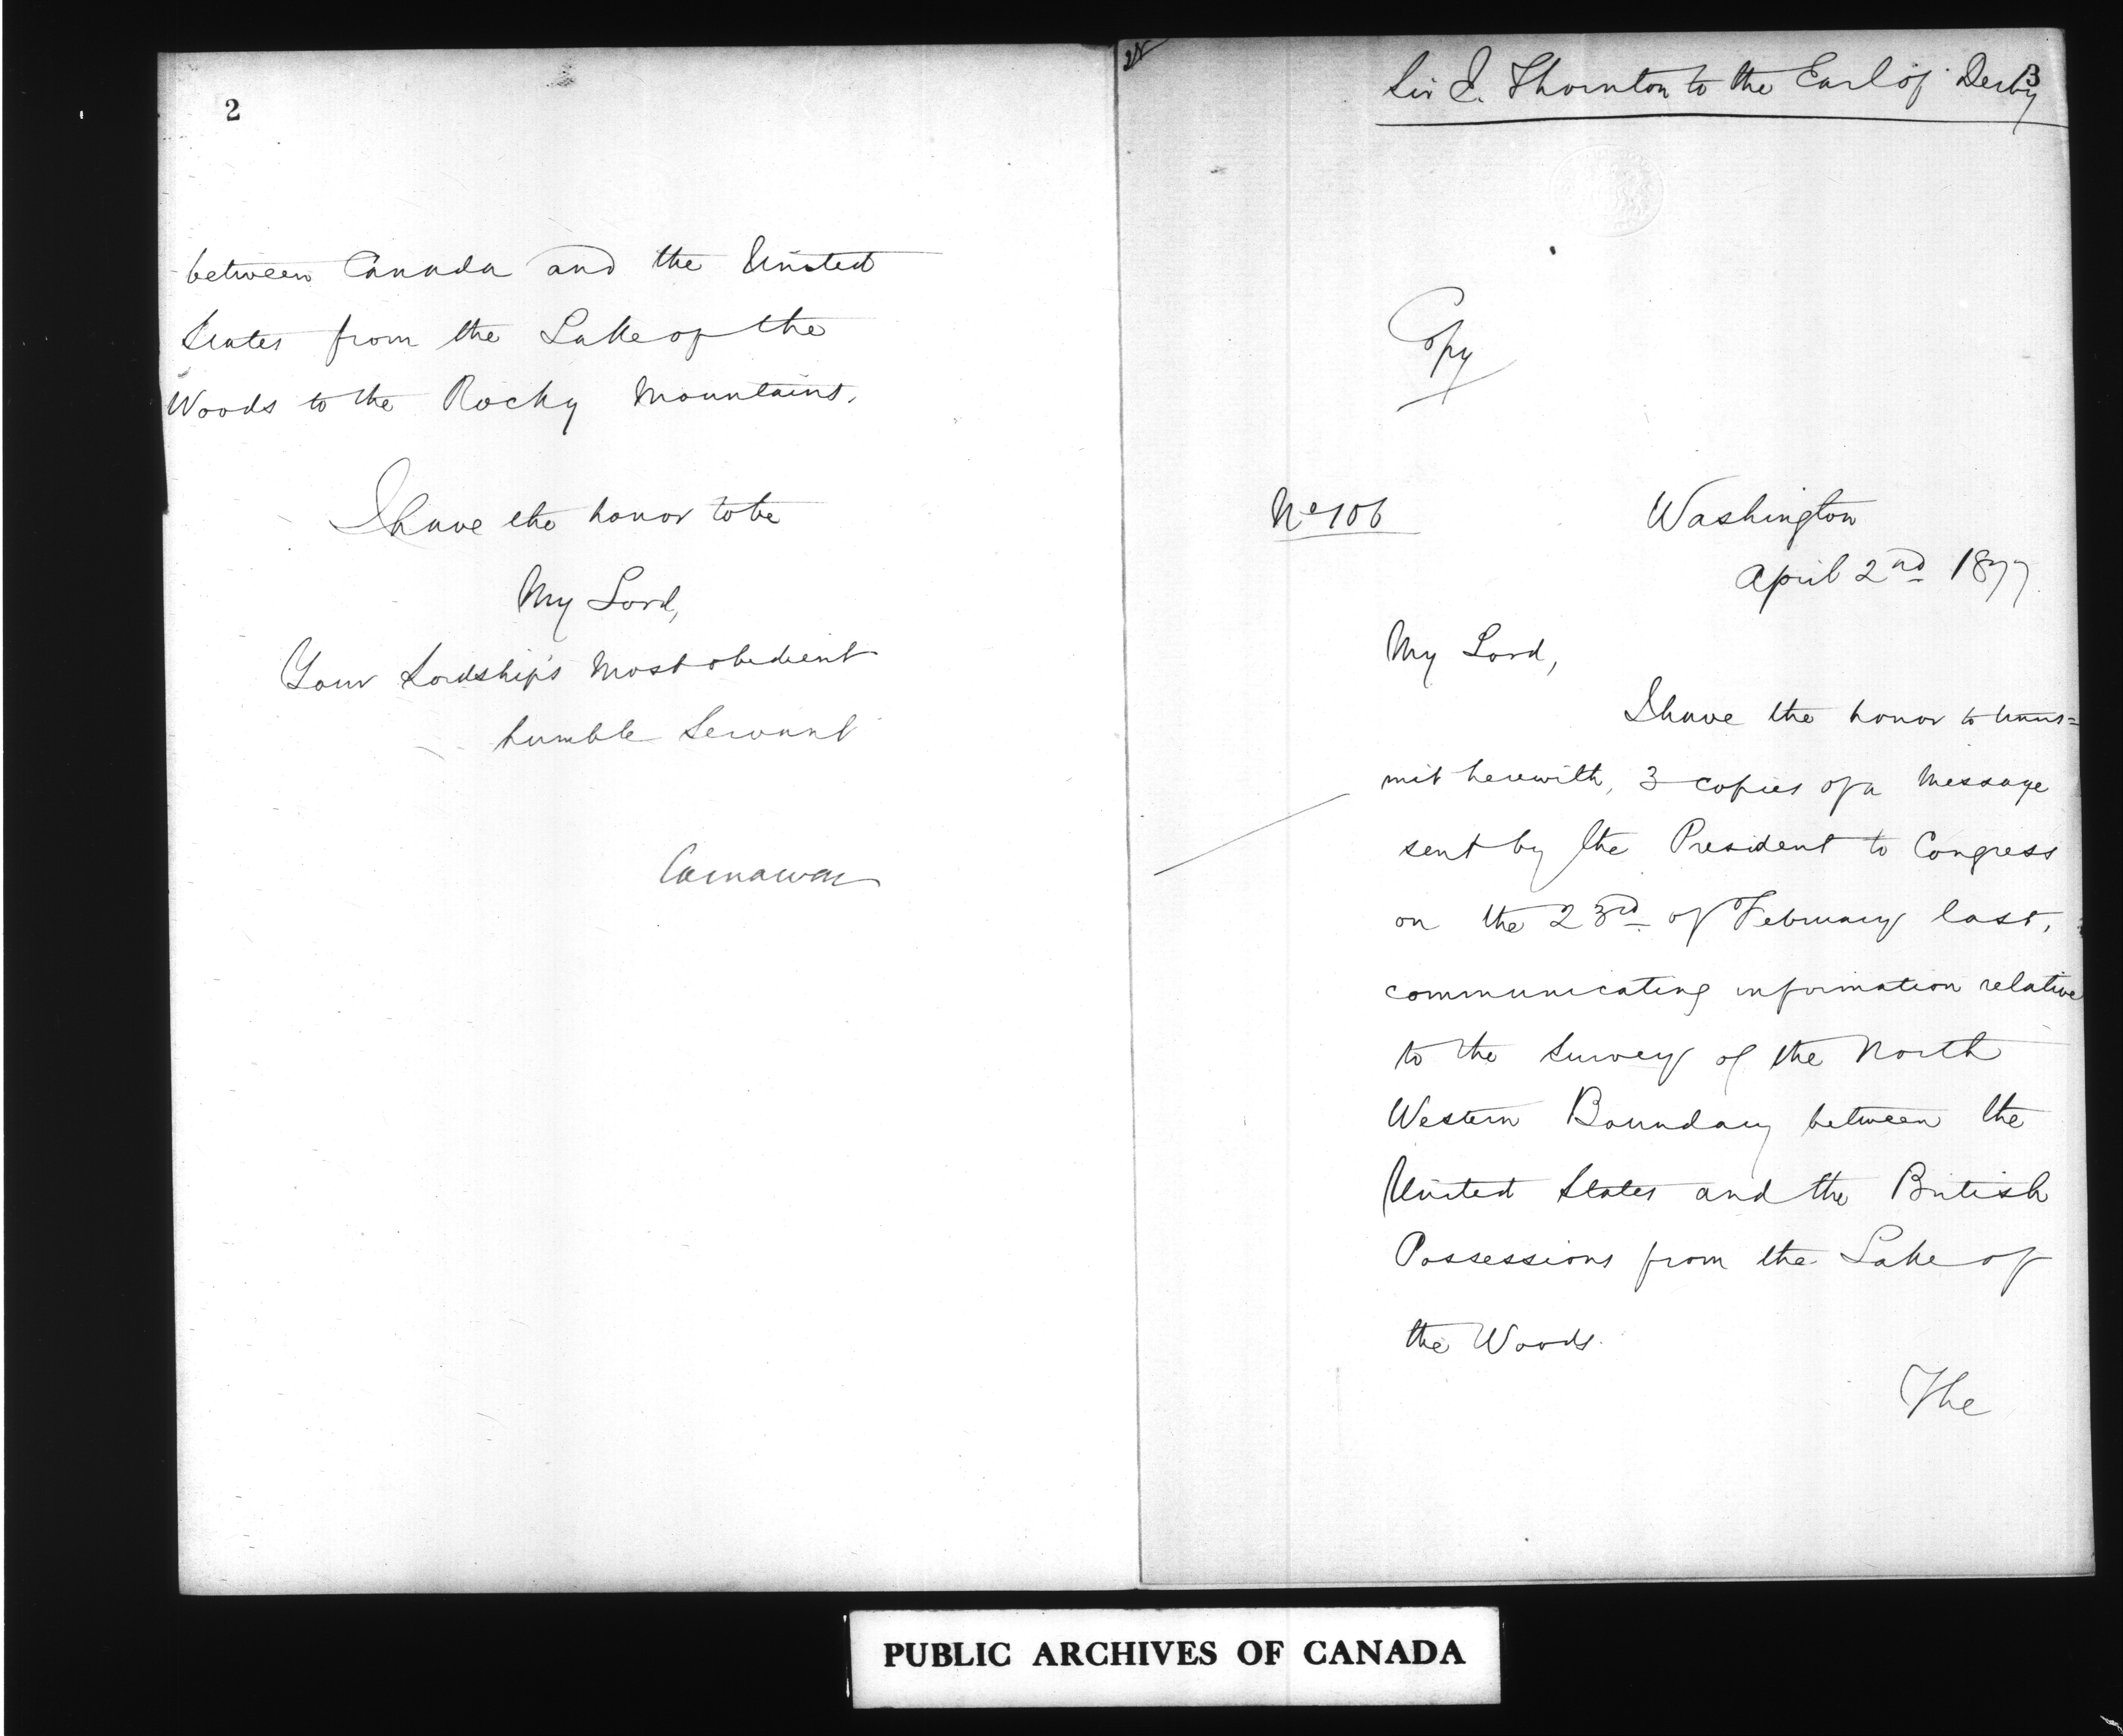 2
between Canada and the United
States from the Lake of the
Woods to the Rocky Mountains.
I have the honor to be
My Lord,
Your Lordship's most obedient
humble Servant
Carnarvon
3
Sir E. Thornton to the Earl of Derby
Copy
No 106
Washington
April 2nd 1877
My Lord,
I have the honor to trans=
mit herewith, 3 copies of a Message
sent by the President to Congress
on the 23rd of February last,
communicating information relative
to the Survey of the North
Western Boundary between the
United States and the British
Possessions from the Lake of
the Woods.
The
PUBLIC ARCHIVES OF CANADA